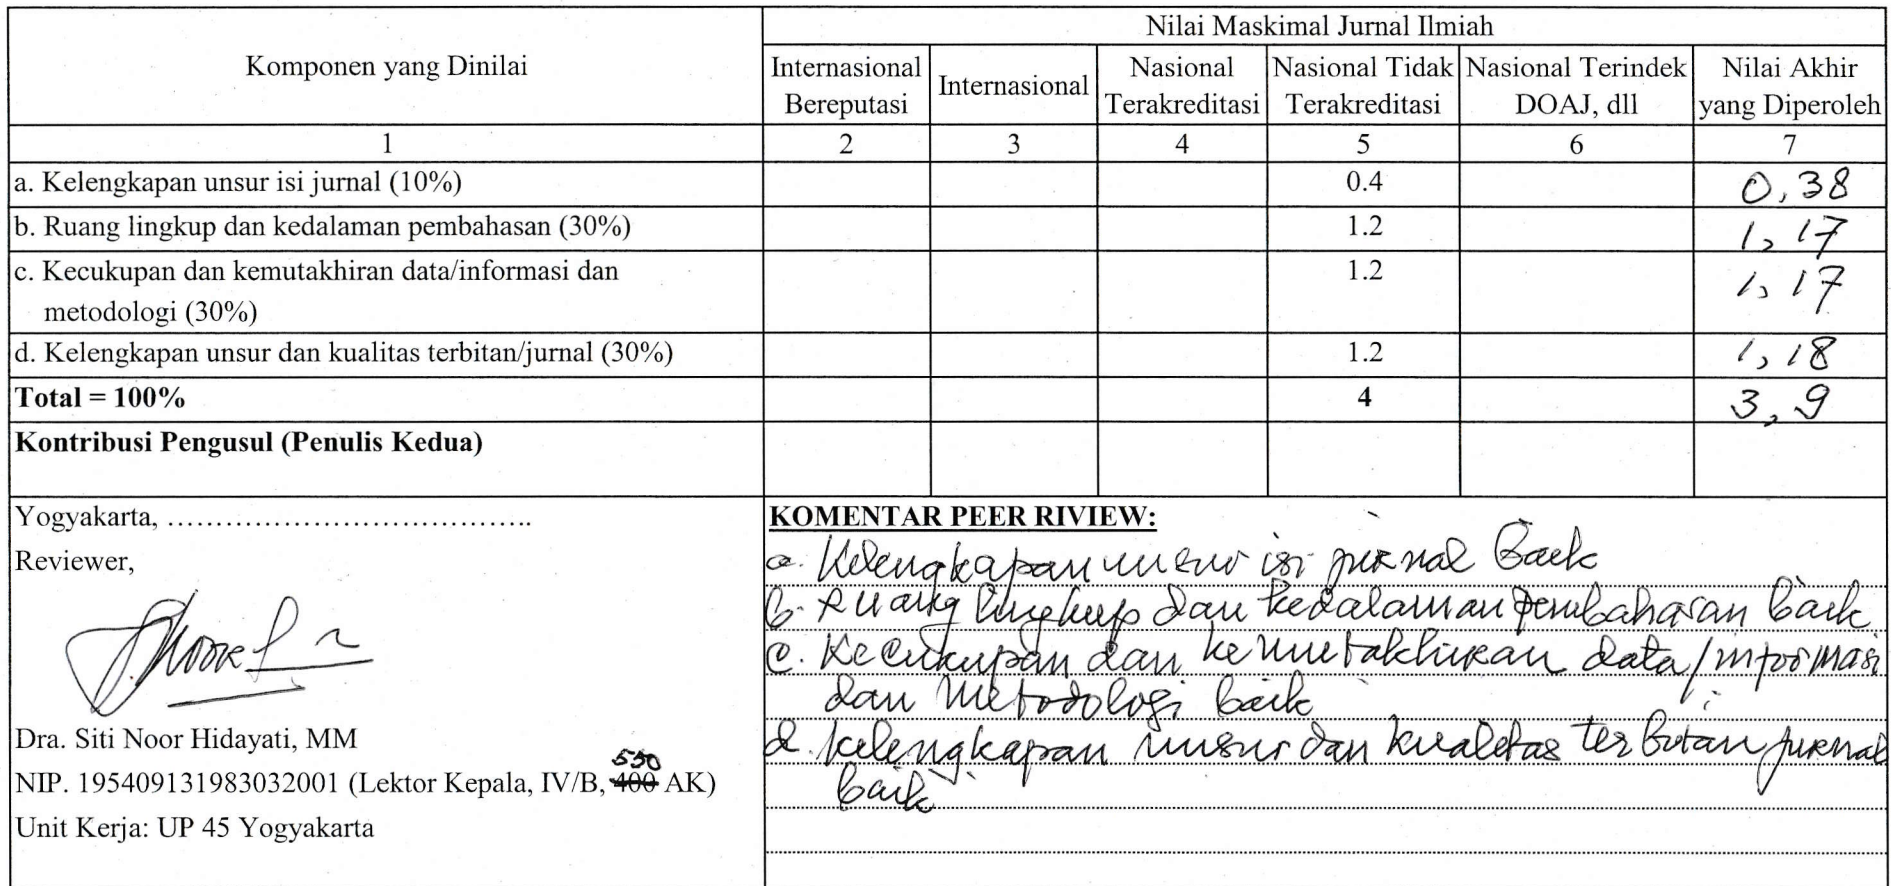 Komponen yang Dinilai
Nilai Maskimal Jurnal Ilmiah
Internasional Bereputasi
Internasional
Nasional Terakreditasi
Nasional Tidak Terakreditasi
Nasional Terindek DOAJ, dll
Nilai Akhir yang Diperoleh
1 2 3 4 5 6 7
a. Kelengkapan unsur isi jurnal (10%) 0.4 0,38
b. Ruang lingkup dan kedalaman pembahasan (30%) 1.2 1,17
c. Kecukupan dan kemutakhiran data/informasi dan
metodologi (30%) 1.2 1,17
d. Kelengkapan unsur dan kualitas terbitan/jurnal (30%) 1.2 1,18
Total = 100% 4 3,9
Kontribusi Pengusul (Penulis Kedua)
Yogyakarta, ……………………………………..
Reviewer,
Dra. Siti Noor Hidayati, MM
550
NIP. 195409131983032001 (Lektor Kepala, IV/B, 400 AK)
Unit Kerja: UP 45 Yogyakarta
KOMENTAR PEER RIVIEW:
a. Kelengkapan unsur isi jurnal Baik
b. Ruang lingkup dan kedalaman pembahasan baik
c. Kecukupan dan kemutakhiran data/informasi
dan metodologi baik
d. kelengkapan unsur dan kualitas terbitan jurnal
baik